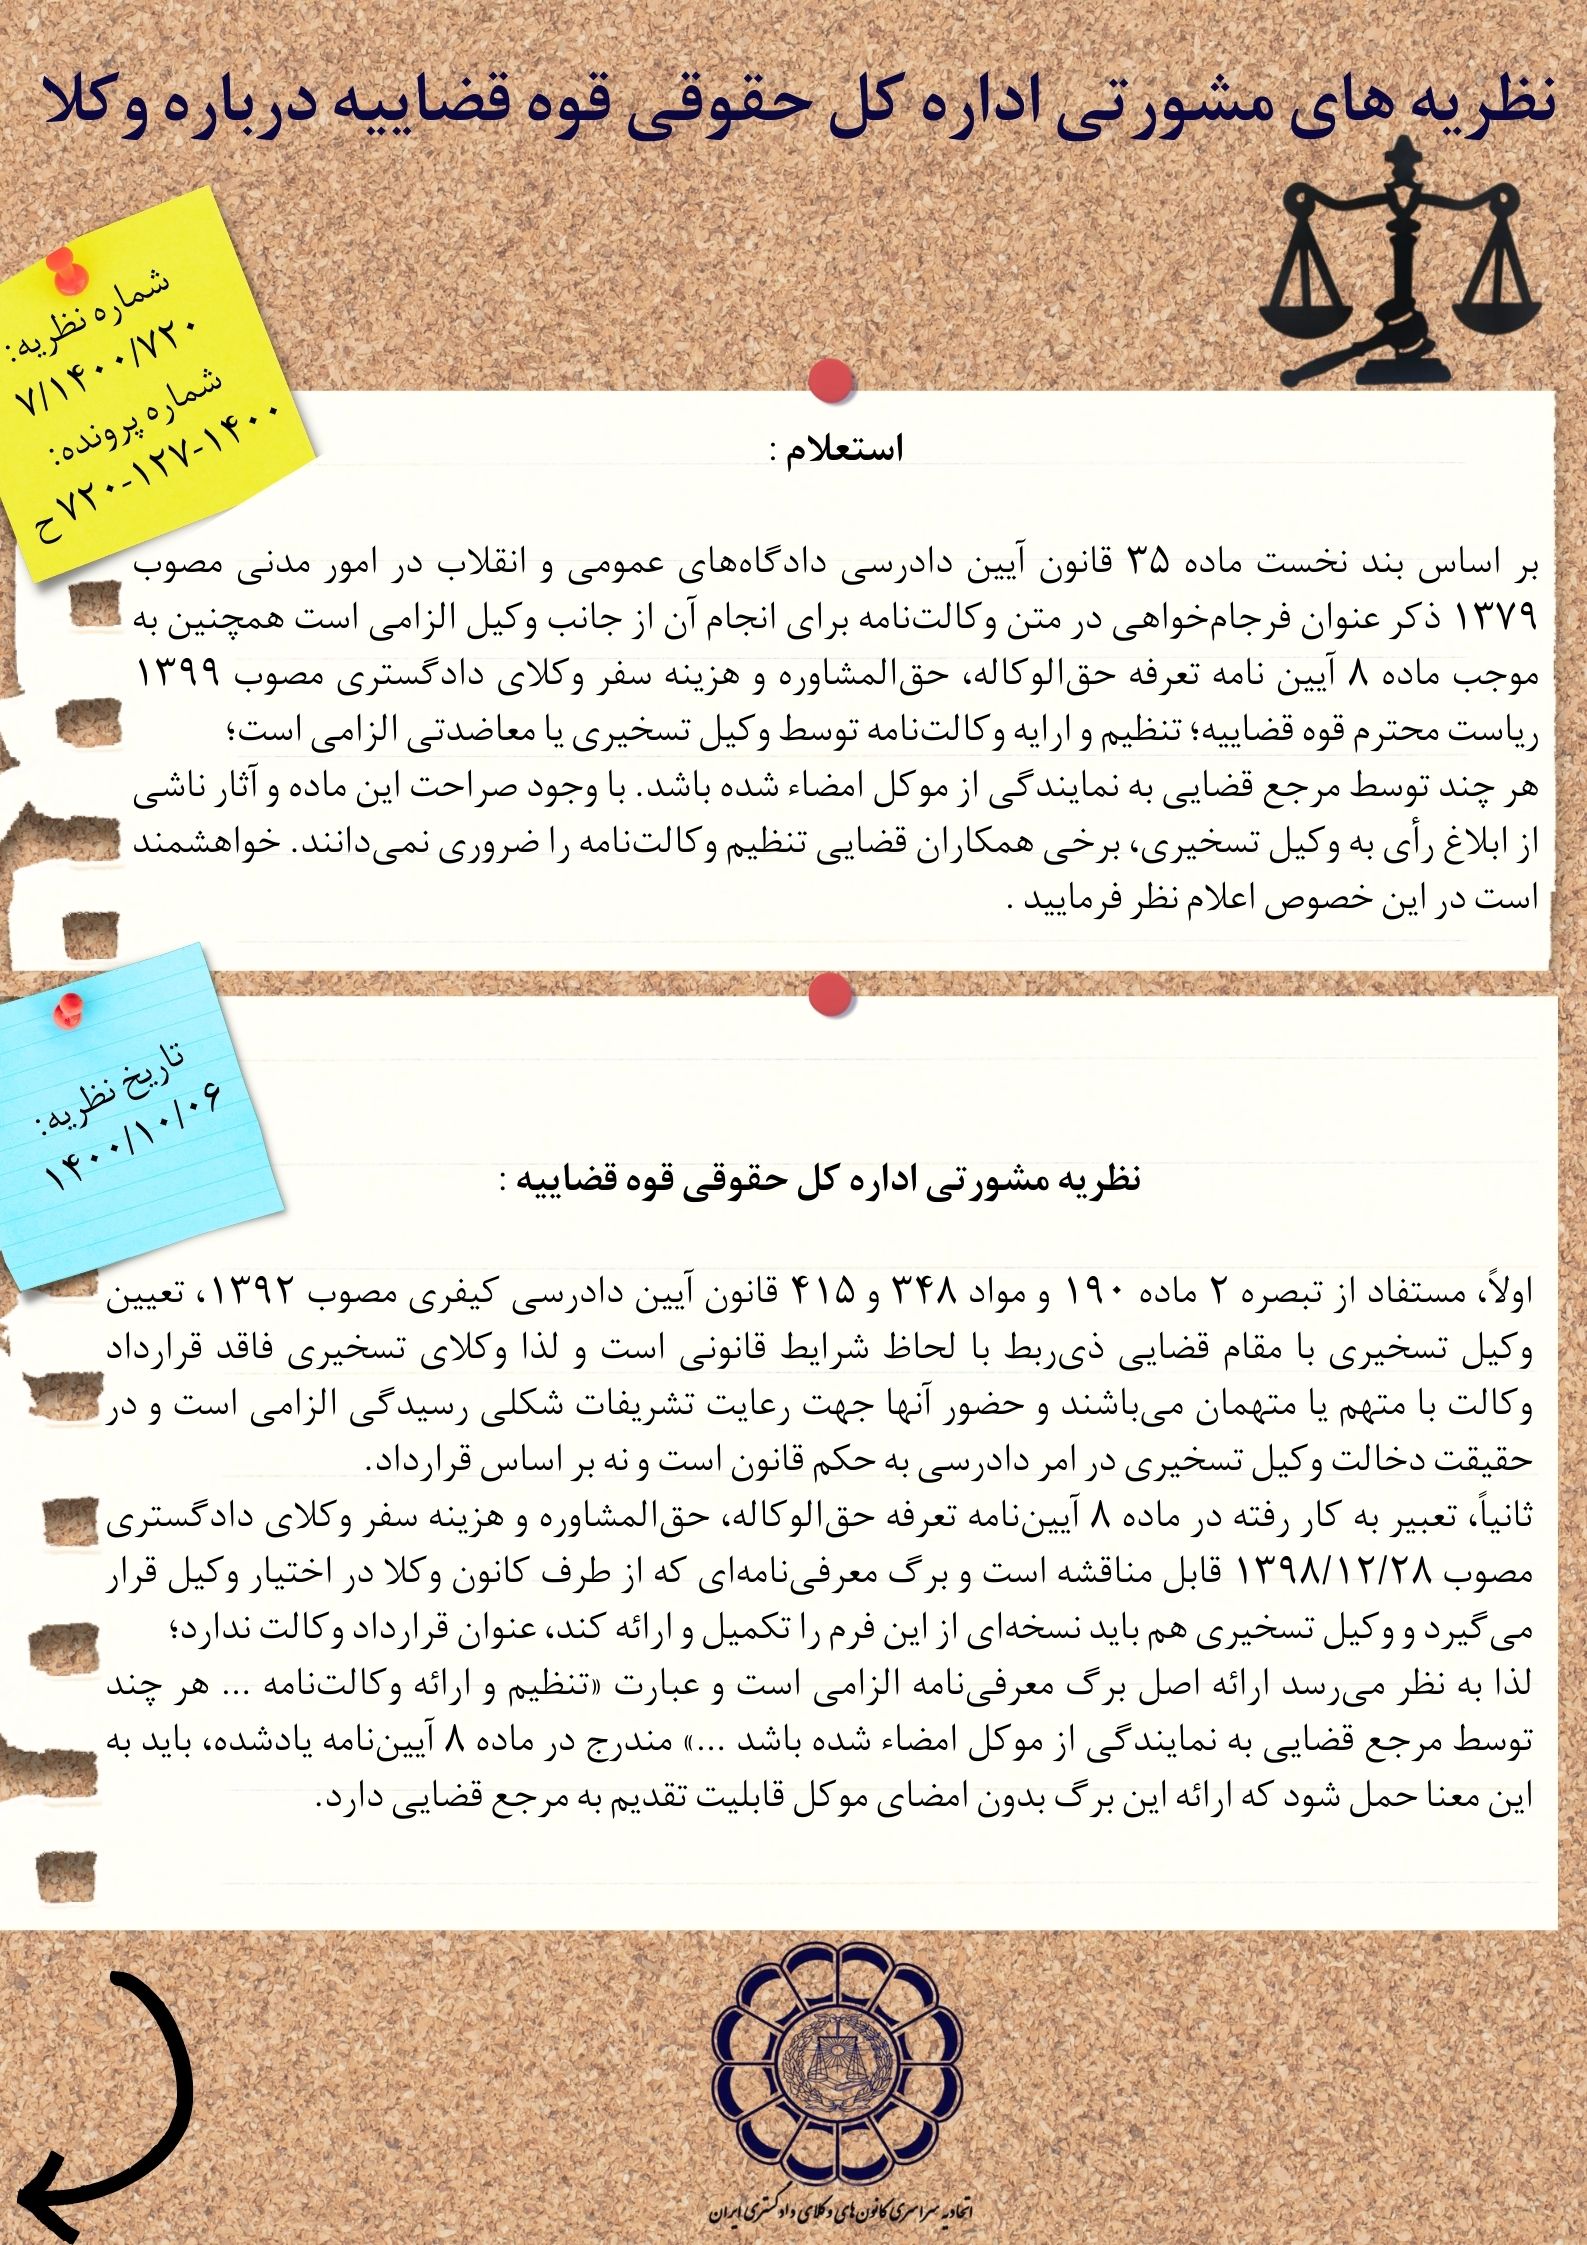 نظریه های مشورتی اداره کل حقوقی قوه قضاییه درباره وکلا
شماره نظریه:
۷/۱۴۰۰/۷۲۰
شماره پرونده:
۱۴۰۰-۱۲۷-۷۲۰ ح
استعلام :
بر اساس بند نخست ماده ۳۵ قانون آیین دادرسی دادگاه‌های عمومی و انقلاب در امور مدنی مصوب
۱۳۷۹ ذکر عنوان فرجام‌خواهی در متن وکالت‌نامه برای انجام آن از جانب وکیل الزامی است همچنین به
موجب ماده ۸ آیین نامه تعرفه حق‌الوکاله، حق‌المشاوره و هزینه سفر وکلای دادگستری مصوب ۱۳۹۹
ریاست محترم قوه قضاییه؛ تنظیم و ارایه وکالت‌نامه توسط وکیل تسخیری یا معاضدتی الزامی است؛
هر چند توسط مرجع قضایی به نمایندگی از موکل امضاء شده باشد. با وجود صراحت این ماده و آثار ناشی
از ابلاغ رأی به وکیل تسخیری، برخی همکاران قضایی تنظیم وکالت‌نامه را ضروری نمی‌دانند. خواهشمند
است در این خصوص اعلام نظر فرمایید .
تاریخ نظریه:
۱۴۰۰/۱۰/۰۶
نظریه مشورتی اداره کل حقوقی قوه قضاییه :
اولاً، مستفاد از تبصره ۲ ماده ۱۹۰ و مواد ۳۴۸ و ۴۱۵ قانون آیین دادرسی کیفری مصوب ۱۳۹۲، تعیین
وکیل تسخیری با مقام قضایی ذی‌ربط با لحاظ شرایط قانونی است و لذا وکلای تسخیری فاقد قرارداد
وکالت با متهم یا متهمان می‌باشند و حضور آنها جهت رعایت تشریفات شکلی رسیدگی الزامی است و در
حقیقت دخالت وکیل تسخیری در امر دادرسی به حکم قانون است و نه بر اساس قرارداد.
ثانیاً، تعبیر به کار رفته در ماده ۸ آیین‌نامه تعرفه حق‌الوکاله، حق‌المشاوره و هزینه سفر وکلای دادگستری
مصوب ۱۳۹۸/۱۲/۲۸ قابل مناقشه است و برگ معرفی‌نامه‌ای که از طرف کانون وکلا در اختیار وکیل قرار
می‌گیرد و وکیل تسخیری هم باید نسخه‌ای از این فرم را تکمیل و ارائه کند، عنوان قرارداد وکالت ندارد؛
لذا به نظر می‌رسد ارائه اصل برگ معرفی‌نامه الزامی است و عبارت «تنظیم و ارائه وکالت‌نامه ... هر چند
توسط مرجع قضایی به نمایندگی از موکل امضاء شده باشد ...» مندرج در ماده ۸ آیین‌نامه یادشده، باید به
این معنا حمل شود که ارائه این برگ بدون امضای موکل قابلیت تقدیم به مرجع قضایی دارد.
اتحادیه سراسری کانون های وکلای دادگستری ایران